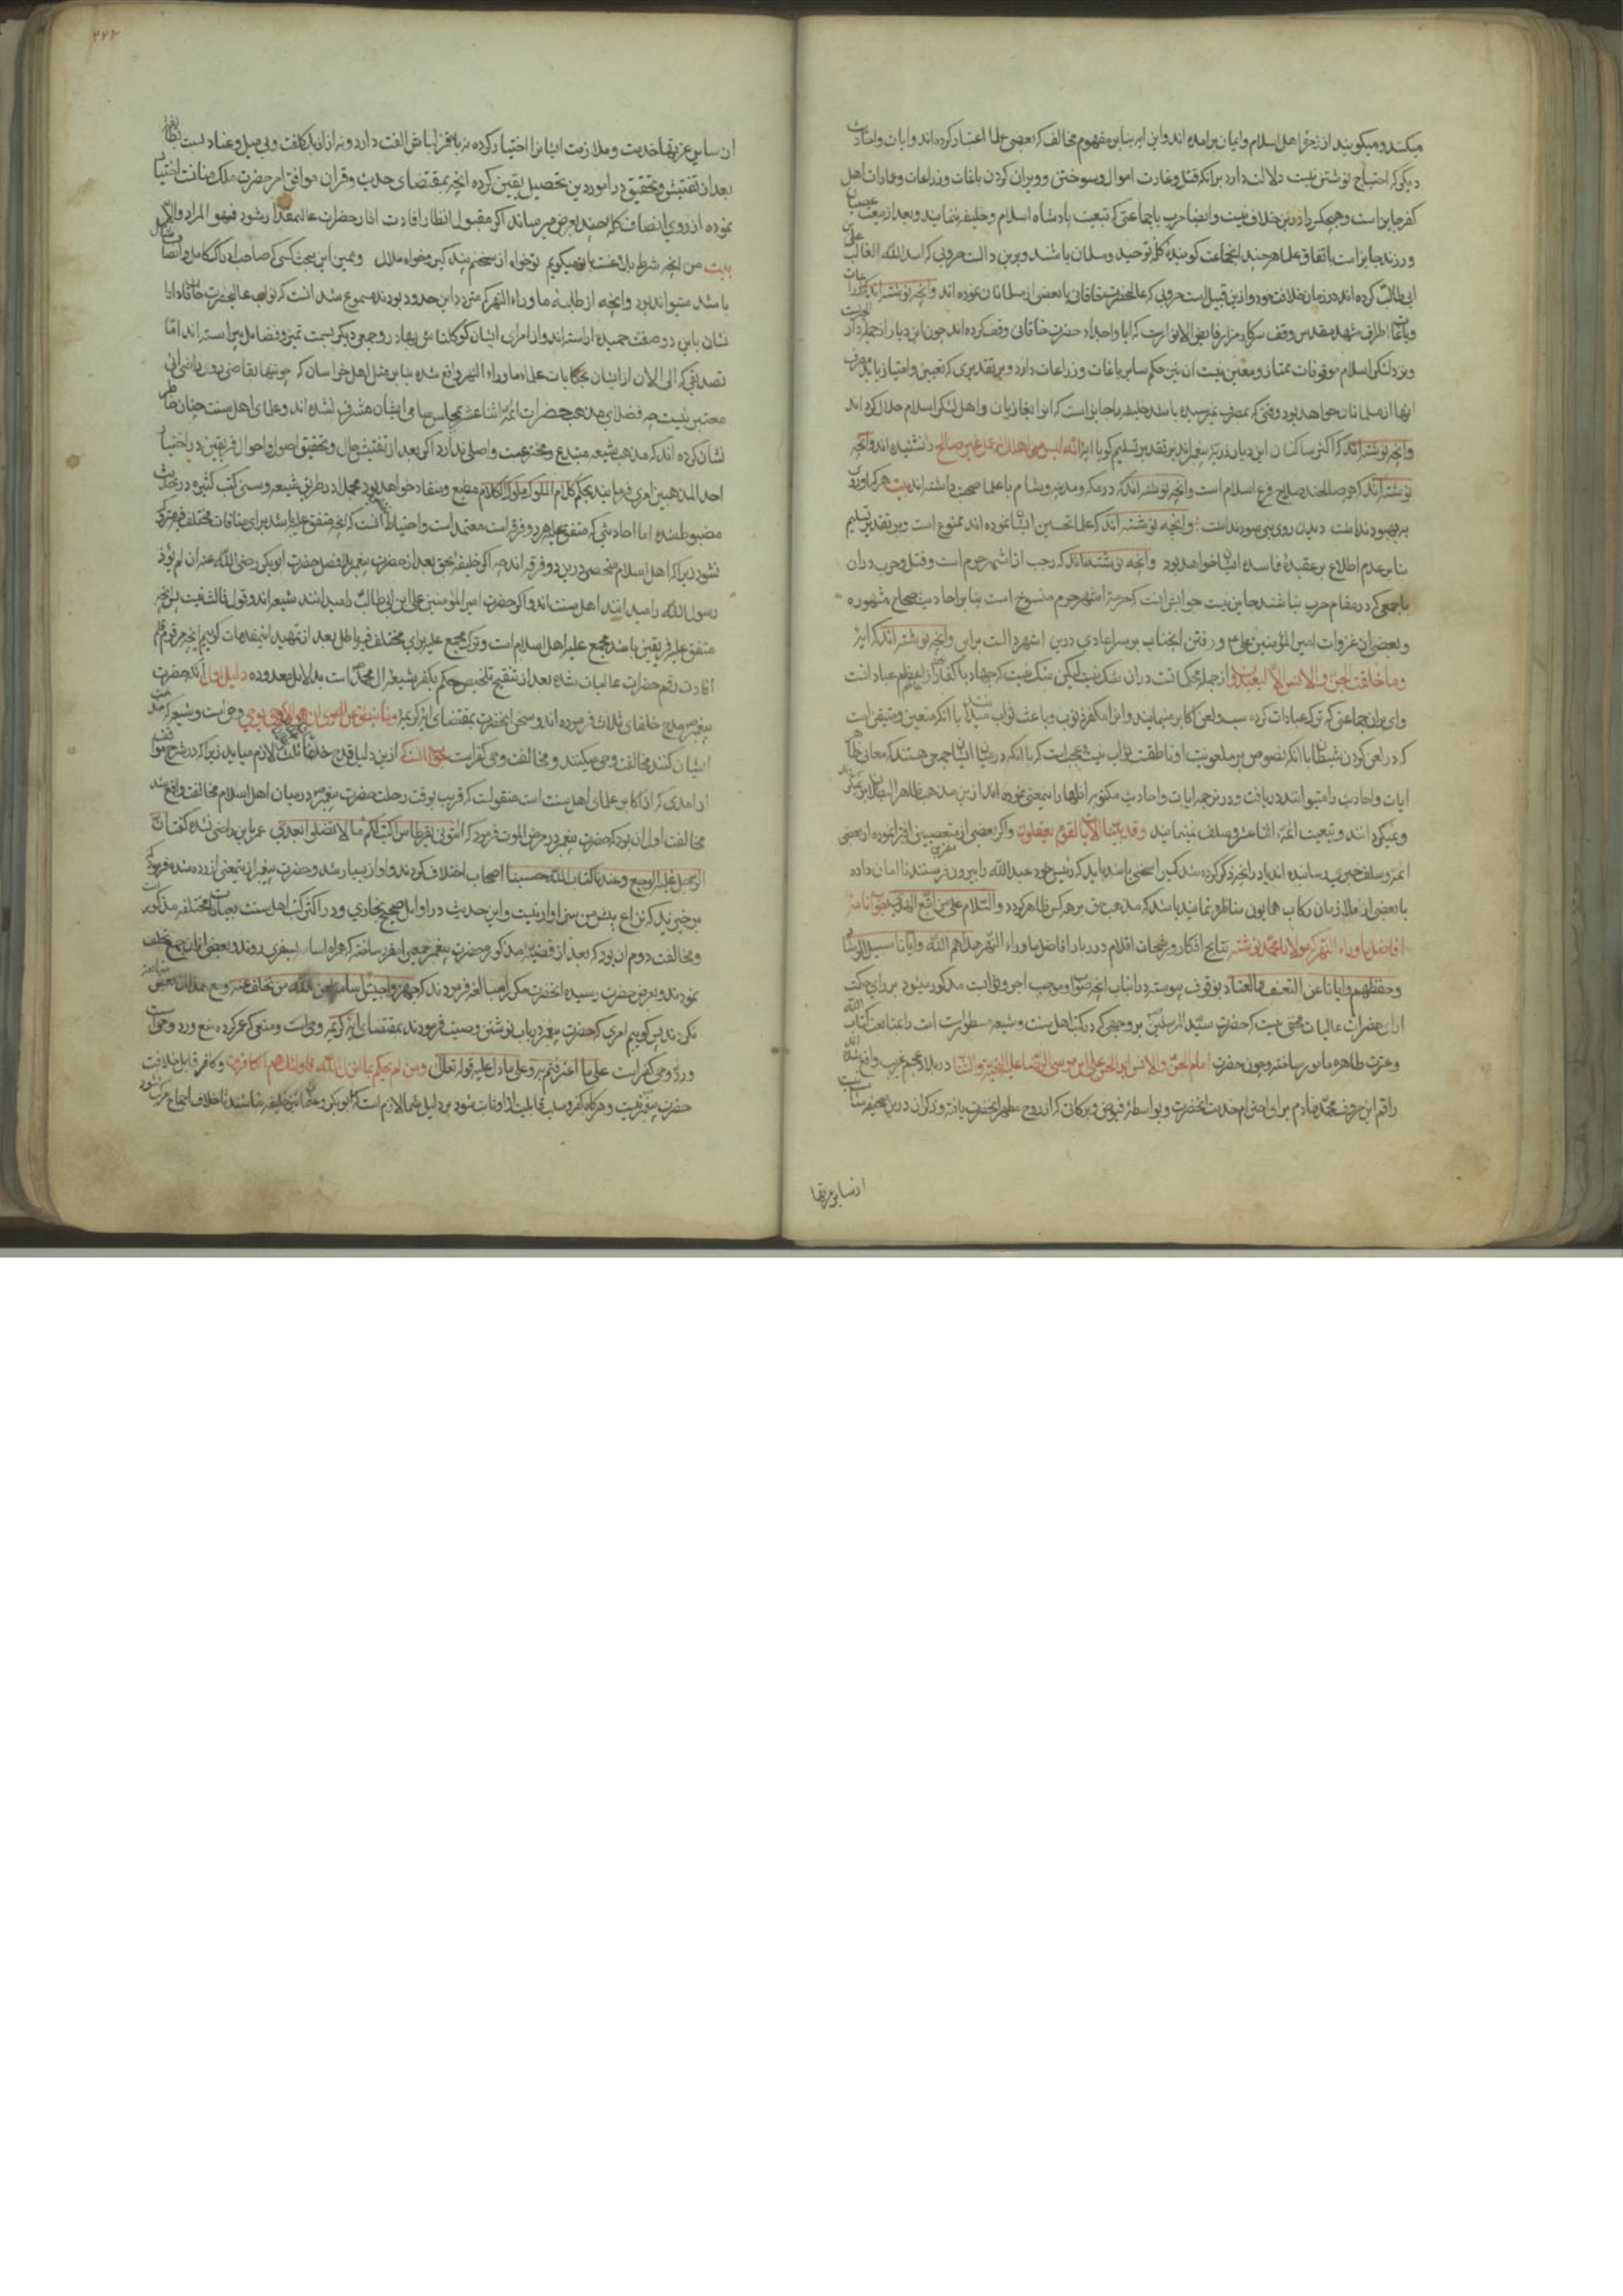 میکنند و میکویند از زمرهٔ اهل اسلام و ایمان برامده اند و این امر بنابر مفهوم مخالف که بعضی علما اعتبار کرده اند و ایات و احادیث
دیکر که احتیاج نوشتن نیست دلالت دارد برانکه قتل و غارت اموال و سوختن و ویران کردن باغات و زراعات و عمارات اهل
کفر جایز است و هیچکس را درین خلاف نیست و ایضا حرب با جماعتی که تبعیت پادشاه اسلام و خلیفه نمایند و بعد از تبعیت عصیان
ورزند جایز است باتفاق علما هر چند انجماعت کویندهٔ کلمهٔ توحید و مسلمان باشند و برین دالست حروبی که اسد الله الغالب علی بن
ابی طالب کرده اند در زمان خلافت خود و ازین قبیل است حروبی که عالیحضرت خاقانی با بعضی از مسلمانان نموده اند وانچه نوشته اند که زراعات
و باغات اطراف مشهد مقدس وقف سرکار مزار فایض الانوار است که ابا و اجداد حضرت خاقانی وقف کرده اند چون این دیار از جمله دار
و نزد لشکر اسلام موقوفات ممتاز و معین نیست ان نیز حکم سایر باغات و زراعات دارد و بر تقدیری که تعیین و امتیاز یابد مصرف
انها از مسلمانان خواهد بود وقتی که بمصرف نمیرسیده باشد خلیفه را جایز است که انرا بغازیان و اهل لشکر اسلام حلال کرداند
وانچه نوشته اند که اکثر ساکنان این دیار ذریهٔ پیغمبراند بر تقدیر تسلیم کویا ایهٔ انه لیس من اهلک انه عمل غیر صالح را نشنیده اند وانچه
نوشته اند که جوصالحند صلاح فرع اسلام است وانچه نوشته اند که در مکه و مدینه و شام با علما صحبت داشته اند بیت هر کرا روی
به بهبود نداشت دیدن روی نبی سود نداشت وانچه نوشته اند که علما تحسین ایشان نموده اند ممنوع است و بر تقدیر تسلیم
بنابر عدم اطلاع بر عقیدهٔ فاسده ایشان خواهد بود وانچه نوشته اند که رجب از اشهر حرم است و قتل و حرب دران
با جمعی که در مقام حرب نباشند جایز نیست جوابش انست که حرمة اشهر حرم منسوخ است بنابر احادیث صحاح مشهوره
و بعضی از غزوات امیر المؤمنین علی و رفتن انجناب بر سر اعادی درین اشهر دالست براین وانچه نوشته اند که ایهٔ
وما خلقت الجن والانس الا لیعبدون از جمله محکمات است دران شک نیست لیکن شک نیست که جهاد با کفار از اعظم عبادا تست
وای بران جماعتی که ترک عبادات کرده سب و لعن اکابر مینمایند وانرا مکفر ذنوب و باعث ثواب میدانند با انکه متعین و متیقن است
که در لعن کردن شیطان با انکه نصوص بر ملعونیت او ناطقست ثواب نیست عجبست که با انکه در میان ایشان جمعی هستند که معانی ظاهر
ایات و احادیث را میتوانند دریافت و در ترجمه ایات و احادیث مکتوبه اظهار اینمعنی نموده اند از این مذهب ظاهر البطلان برنمیکردند
و نمیکردانند و تبعیت ائمه اثنا عشر و سلف نمینمایند وقد بینا الایات لقوم یعقلون واکر بعضی از متعصبین افترا نموده از بعضی
ائمه و سلف خبری رسانیده اند یا در انچه ذکر کرده شد کسی را سخنی باشد باید که رئیس خود عبدالله را بیرون فرستند تا امان داده
با بعضی از ملازمان رکاب همایون مناظره نمایند باشد که مذهب حق بر هر کس ظاهر کردد والسلام علی من اتبع الهدی جواب نامهٔ
افاضل ماوراء النهر که مولانا محمد نوشته نتایج افکار و رشحات اقلام دوربار افاضل ماوراء النهر هداهم الله وایانا سبیل الرشاد
وحفظهم وایانا عن التعسف والعناد بوقوف پیوسته در اینباب انچه صواب و موجب اجر و ثوابست مذکور میشود بر رای حکمت
ارای حضرات عالیات مخفی نیست که حضرت سید المرسلین بر وجهی که در کتب اهل سنت و شیعه مسطور است امت را بمتابعت کتاب الله
و عترت طاهره مامور ساخته و چون حضرت امام الجن والانس ابو الحسن علی ابن موسی الرضا علیه التحیة والثنا در بلاد عجم غریب واقع شده اند
راقم این حروف محمد خادم برای احترام خدمت انحضرت و بواسطهٔ فیوض و برکاتی که از روح مطهر انحضرت یافته
از سایر عزتها
۲۲۳
ان سایر عزتها خدمت و ملازمت ایشانرا اختیار کرده نه با قزلباش الفت دارد و نه از ازبک کلفت و بی میل و عناد
بعد از تفتیش و تحقیق در امور دین تحصیل یقین کرده انچه بمقتضای حدیث و قران موافق امر حضرت ملک منانست اختیار
نموده از روی انصاف کلمهٔ چند بعرض میرساند اکر مقبول انظار افادت اثار حضرات عالیمقدار شود فهو المراد والا
بیت من انچه شرط بلاغست با تو میکویم تو خواه از سخنم پند کیر و خواه ملال
باشد میتواند بود وانچه از طلبهٔ ماوراء النهر که متردد این حدود بودند مسموع شد انست که نواب عالیحضرت خاقان
نشان باین دو صفت حمیده اراسته اند و از امرای ایشان کوکلتاش بهادر و جمعی دیکر بسمت تمیز و فضایل پیراسته اند امّا
تصدیقی که الی الان از ایشان بحکایات علماء ماوراء النهر واقع شده بنابر مثل اهل خراسان که چون تنها بقاضی روی راضی آئی
معتبر نیست چه فضلای مذهب حضرات ائمهٔ اثنا عشر بمجلس سامی ایشان مشرف نشده اند و علمای اهل سنت چنان خاطر
نشان کرده اند که مذهب شیعه مبتدع و مخترعست و اصلی ندارد اکر بعد از تفتیش حال و تحقیق اصول و احوال فریقین در اختیار
احد المذهبین امری فرمایند بحکم کلام الملوک ملوک الکلام مطیع و منقاد خواهد بود مجملا در طریق شیعه و سنی کتب کثیره در احادیث
مضبوط شده اما احادیثی که متفق علیه هر دو فرقه است معتمد است و احتیاط انست که انچه متفق علیه باشد برای منافات مختلف فیه ترک
نشود زیرا که اهل اسلام منحصر درین دو فرقه اند چه اکر خلیفهٔ بحق بعد از حضرت پیغمبر بلا فصل حضرت ابوبکر رضی الله عنه
رسول الله را میدانند اهل سنت اند و اکر حضرت امیر المؤمنین علی ابن ابی طالب را میدانند شیعه اند و قول ثالث نیست پس انچه
متفق علیه فریقین باشد مجمع علیه اهل اسلام است و ترک مجمع علیه برای مختلف فیه باطل بعد از تمهید این مقدمات کوییم انچه مرقوم قلم
افادت رقم حضرات عالیات شده بعد از تنقیح و تلخیص حکم بکفر شیعهٔ ال محمد است بدلایل معدوده دلیل اول آنکه حضرت
پیغمبر مدح خلفای ثلاث فرموده اند و سخن انحضرت بمقتضای ایهٔ کریمهٔ وما ینطق عن الهوی ان هو الا وحی یوحی وحی است و شیعه که مذمت
ایشان کنند مخالفت وحی میکنند و مخالفت وحی کفر است جواب انست که ازین دلیل قدح خلفاء ثلث لازم میاید زیرا که در شرح مواقف
از امدی که از اکابر علمای اهل سنت است منقولست که قریب بوقت رحلت حضرت پیغمبر در میان اهل اسلام مخالفت واقع شد
مخالفت اول ان بود که حضرت پیغمبر در مرض الموت فرمود که ائتونی بقرطاس اکتب لکم ما لا تضلوا بعدی عمر باین راضی نشده کفت ان
الرجل غلبه الوجع وعندنا کتاب الله حسبنا اصحاب اختلاف کردند و اواز بسیار شد و حضرت پیغمبر از ینمعنی ازرده شده فرمود که
برخیزید که نزاع پیش من سزاوار نیست و این حدیث در اوایل صحیح بخاری و در اکثر کتب اهل سنت بعبارات مختلفه مذکور است
و مخالفت دوم ان بود که بعد از قضیهٔ مذکور حضرت پیغمبر جمعی را مقرر ساخته که همراه اسامه بسفری روند و بعضی ازان جمع تخلف
نمودند و بعرض حضرت رسیده انحضرت مکرر مبالغه فرمودند که جهزوا جیش اسامه لعن الله من تخلف عنه و مع هذا ان بعض متابعت
نکردند پس کوییم امری که حضرت پیغمبر در باب نوشتن وصیت فرمودند بمقتضای ایهٔ کریمه وحی است و منعی که عمر کرده منع و رد وحی است
و رد وحی کفر است علی ما اعترفتم به وعلی ما دل علیه قوله تعالی ومن لم یحکم بما انزل الله فاولئک هم الکافرون و کافر قابل خلافت
حضرت پیغمبر نیست و هر کاه